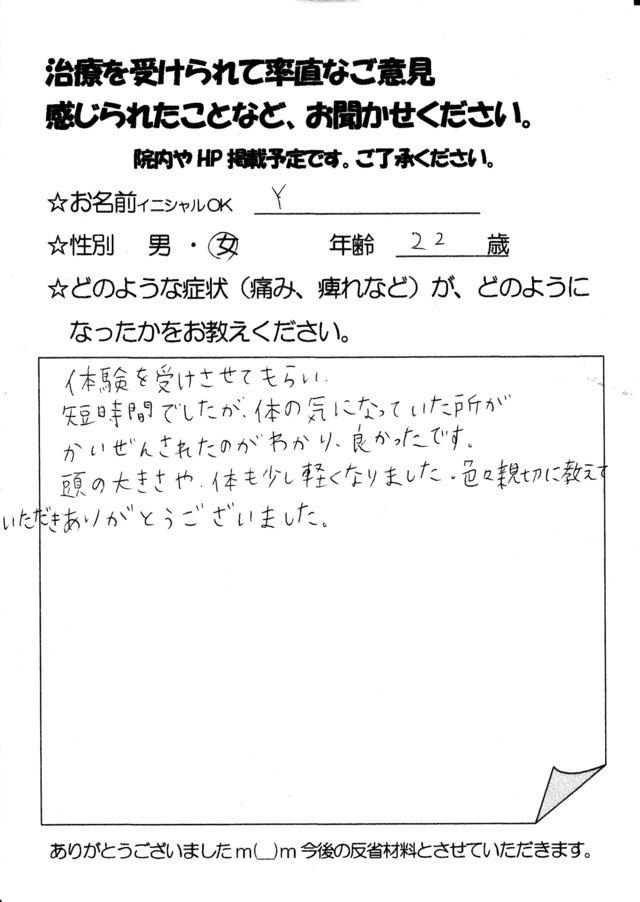 治療を受けられて率直なご意見
感じられたことなど、お聞かせください。
院内やHP掲載予定です。ご了承ください。
☆お名前イニシャルOK Y
☆性別 男・女 年齢 22 歳
☆どのような症状（痛み、痺れなど）が、どのように
なったかをお教えください。
体験を受けさせてもらい、
短時間でしたが、体の気になっていた所が
かいぜんされたのがわかり、良かったです。
頭の大きさや、体も少し軽くなりました。色々親切に教えて
いただきありがとうございました。
ありがとうございましたm(__)m今後の反省材料とさせていただきます。